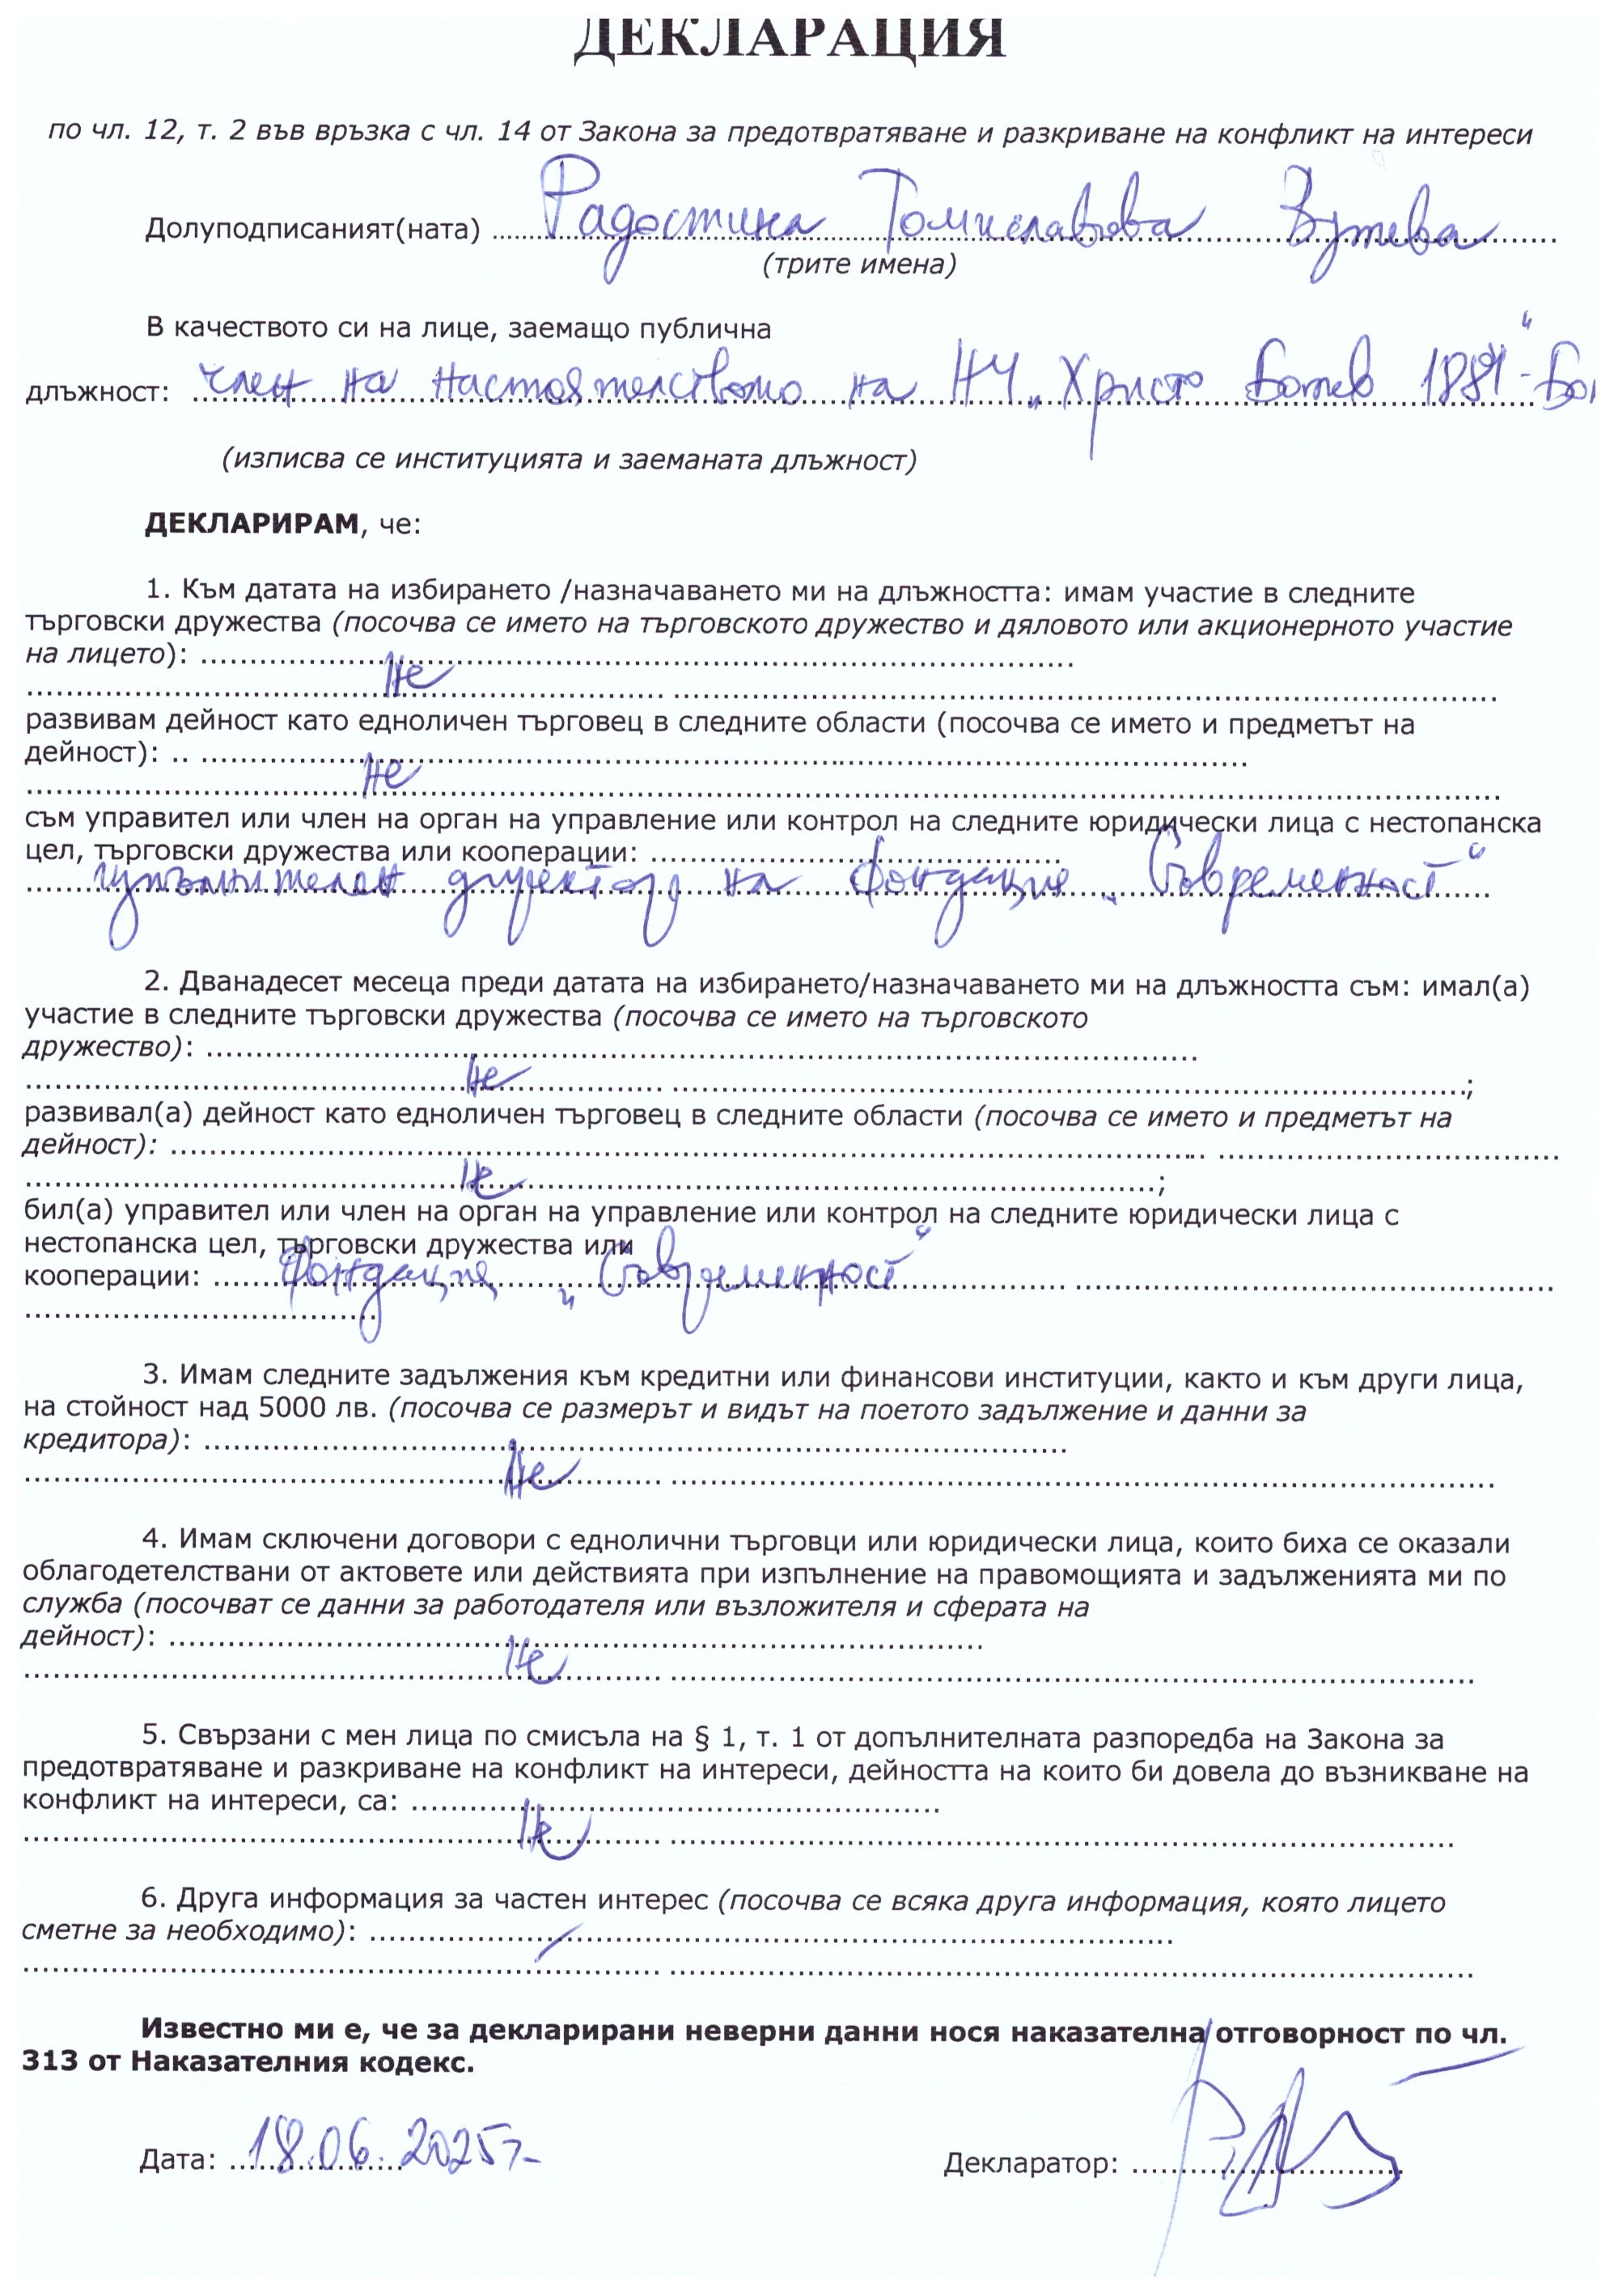 ДЕКЛАРАЦИЯ
по чл. 12, т. 2 във връзка с чл. 14 от Закона за предотвратяване и разкриване на конфликт на интереси
Долуподписаният(ната) Радостина Томиславова Вутева
(трите имена)
В качеството си на лице, заемащо публична
длъжност: член на настоятелството на НЧ „Христо Ботев 1884“-Бо
(изписва се институцията и заеманата длъжност)
ДЕКЛАРИРАМ, че:
1. Към датата на избирането /назначаването ми на длъжността: имам участие в следните
търговски дружества (посочва се името на търговското дружество и дяловото или акционерното участие
на лицето): ..........
Не
развивам дейност като едноличен търговец в следните области (посочва се името и предметът на
дейност): .. ..........
Не
съм управител или член на орган на управление или контрол на следните юридически лица с нестопанска
цел, търговски дружества или кооперации: ..........
изпълнителен директор на Фондация „Съвременност“
2. Дванадесет месеца преди датата на избирането/назначаването ми на длъжността съм: имал(а)
участие в следните търговски дружества (посочва се името на търговското
дружество): ..........
Не ;
развивал(а) дейност като едноличен търговец в следните области (посочва се името и предметът на
дейност): ..........
Не ;
бил(а) управител или член на орган на управление или контрол на следните юридически лица с
нестопанска цел, търговски дружества или
кооперации: Фондация „Съвременност“
3. Имам следните задължения към кредитни или финансови институции, както и към други лица,
на стойност над 5000 лв. (посочва се размерът и видът на поетото задължение и данни за
кредитора): ..........
Не
4. Имам сключени договори с еднолични търговци или юридически лица, които биха се оказали
облагодетелствани от актовете или действията при изпълнение на правомощията и задълженията ми по
служба (посочват се данни за работодателя или възложителя и сферата на
дейност): ..........
Не
5. Свързани с мен лица по смисъла на § 1, т. 1 от допълнителната разпоредба на Закона за
предотвратяване и разкриване на конфликт на интереси, дейността на които би довела до възникване на
конфликт на интереси, са: ..........
Не
6. Друга информация за частен интерес (посочва се всяка друга информация, която лицето
сметне за необходимо): ..........
Известно ми е, че за декларирани неверни данни нося наказателна отговорност по чл.
313 от Наказателния кодекс.
Дата: 18.06.2025г. Декларатор: ..........